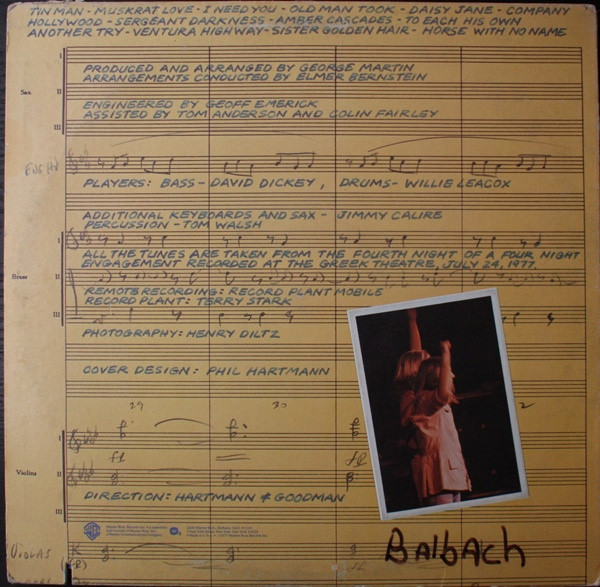 TIN MAN - MUSKRAT LOVE - I NEED YOU - OLD MAN TOOK - DAISY JANE - COMPANY
HOLLYWOOD - SERGEANT DARKNESS - AMBER CASCADES - TO EACH HIS OWN
ANOTHER TRY - VENTURA HIGHWAY - SISTER GOLDEN HAIR - HORSE WITH NO NAME
I
PRODUCED AND ARRANGED BY GEORGE MARTIN
ARRANGEMENTS CONDUCTED BY ELMER BERNSTEIN
Sax
II
ENGINEERED BY GEOFF EMERICK
ASSISTED BY TOM ANDERSON AND COLIN FAIRLEY
III
PLAYERS: BASS - DAVID DICKEY, DRUMS - WILLIE LEACOX
ADDITIONAL KEYBOARDS AND SAX - JIMMY CALIRE
PERCUSSION - TOM WALSH
I
ALL THE TUNES ARE TAKEN FROM THE FOURTH NIGHT OF A FOUR NIGHT
ENGAGEMENT RECORDED AT THE GREEK THEATRE, JULY 24, 1977.
Brass
II
REMOTE RECORDING: RECORD PLANT MOBILE
RECORD PLANT: TERRY STARK
III
PHOTOGRAPHY: HENRY DILTZ
COVER DESIGN: PHIL HARTMANN
29 30
I
Violins
II
DIRECTION: HARTMANN & GOODMAN
III
Balbach
VIOLAS